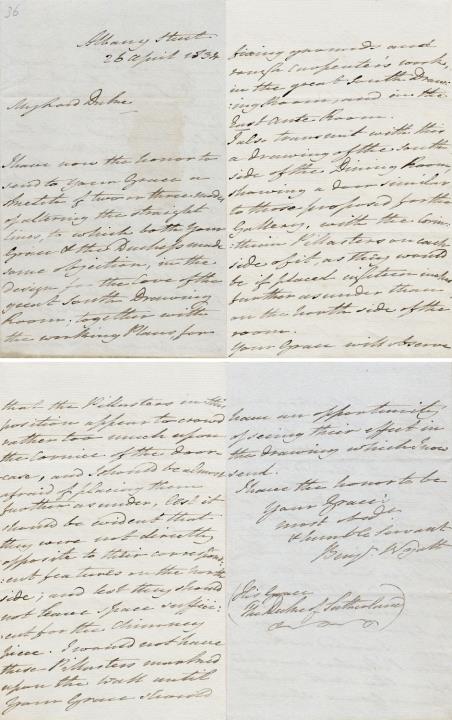 36
Albany Street
26 April 1834
My Lord Duke,
I have now the honor to
send to Your Grace a
sketch of two or three modes
of altering the straight
lines, to which both Your
Grace & the Duchess made
some objection, in the
Design for the Cove of the
great South Drawing
Room; together with
the working Plans for
fixing grounds and
rough Carpenter's work,
in the great South Draw-
ing Room, and in the
East Ante Room.
I also transmit with this
a drawing of the South
side of the Dining Room
showing a door similar
to those proposed for the
Gallery, with the Corin-
thian Pillasters on each
side of it as they would
be if placed fifteen inches
further asunder than
on the North side of the
room.
Your Grace will observe
that the Pillasters in this
position appear to crowd
rather too much upon
the Cornice of the door
case, and I should be almost
afraid of placing them
further asunder, lest it
should be evident that
they were not directly
opposite to their correspon-
-ent features on the North
side; and lest they should
not leave space suffici-
-ent for the chimney
piece. I would not have
these Pillasters marked
upon the wall until
Your Grace should
have an opportunity
of seeing their effect in
the drawing which I now
send.
I have the honor to be
Your Grace's
most obedt
& humble Servant
Benjn Wyatt
His Grace
The Duke of Sutherland